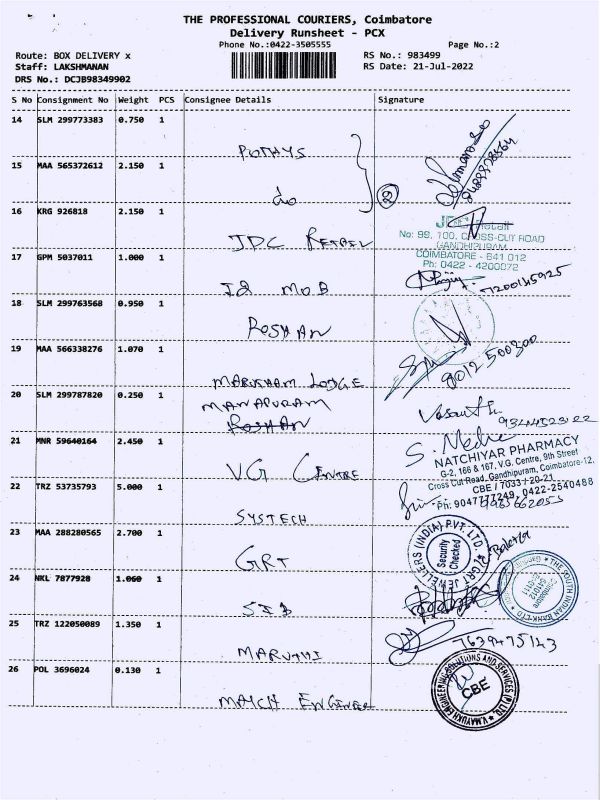 THE PROFESSIONAL COURIERS, Coimbatore
Delivery Runsheet - PCX
Phone No.:0422-3505555
Page No.:2
Route: BOX DELIVERY x
RS No.: 983499
Staff: LAKSHMANAN
RS Date: 21-Jul-2022
DRS No.: DCJB98349902
S No Consignment No Weight PCS Consignee Details Signature
14 SLM 299773383 0.750 1
POTHYS
15 MAA 565372612 2.150 1
do
16 KRG 926818 2.150 1
JDC RETAIL
No: 99, 100, CROSS-CUT ROAD
GANDHIPURAM
COIMBATORE - 641 012
Ph: 0422 - 4200072
17 GPM 5037011 1.000 1
18 SLM 299763568 0.950 1
ROSHAN
19 MAA 566338276 1.070 1
8012500300
LODGE
20 SLM 299787820 0.250 1
MANAPURAM
ROSHAN
21 MNR 59640164 2.450 1
VG CENTRE
NATCHIYAR PHARMACY
G-2, 166 & 167, V.G. Centre, 9th Street
Cross Cut Road, Gandhipuram, Coimbatore-12.
CBE / 7033 / 20-21
Ph: 9047777249, 0422-2540488
22 TRZ 53735793 5.000 1
SYSTECH
23 MAA 288280565 2.700 1
GRT
GRT JEWELLERS (INDIA) PVT. LTD.
Security
Checked
24 NKL 7877928 1.060 1
SIB
THE SOUTH INDIAN BANK LTD
Coimbatore
25 TRZ 122050089 1.350 1
MARUTHI
7639475143
26 POL 3696024 0.130 1
MARCH ENGINEER
V.MAYUKH ENGINEERING SOLUTIONS AND SERVICES (P) LTD.
CBE